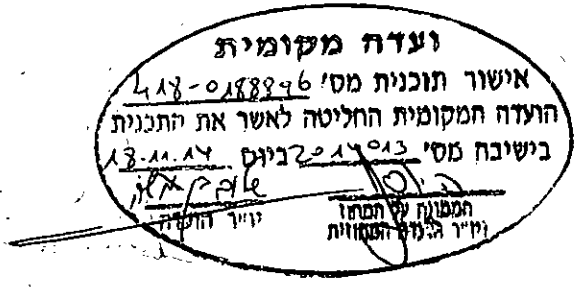 ועדה מקומית
אישור תוכנית מס' 418-0188896
הועדה המקומית החליטה לאשר את התכנית
בישיבה מס' 2014013 ביום 18.11.14
יו״ר הועדה
הממונה על המחוז